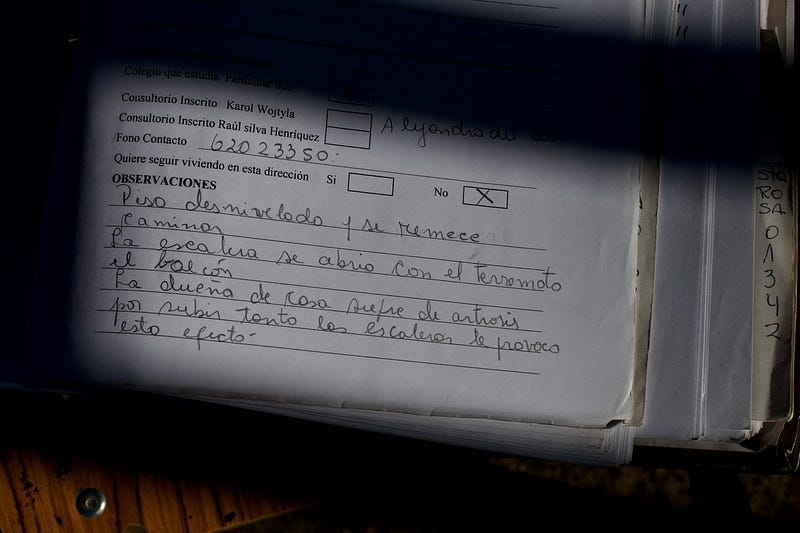 Colegio que estudia Particular Sub.
X
Consultorio Inscrito Karol Wojtyla
Consultorio Inscrito Raúl silva Henríquez Alejandro del Rio
Fono Contacto 62023350.
Quiere seguir viviendo en esta dirección Si No X
OBSERVACIONES
Piso desnivelado y se remece
caminar
La escalera se abrio con el terremoto
el balcón
La dueña de casa sufre de artrosis
por subir tanto las escaleras le provoco
esto efecto-
STA
ROSA
0
1
3
4
2